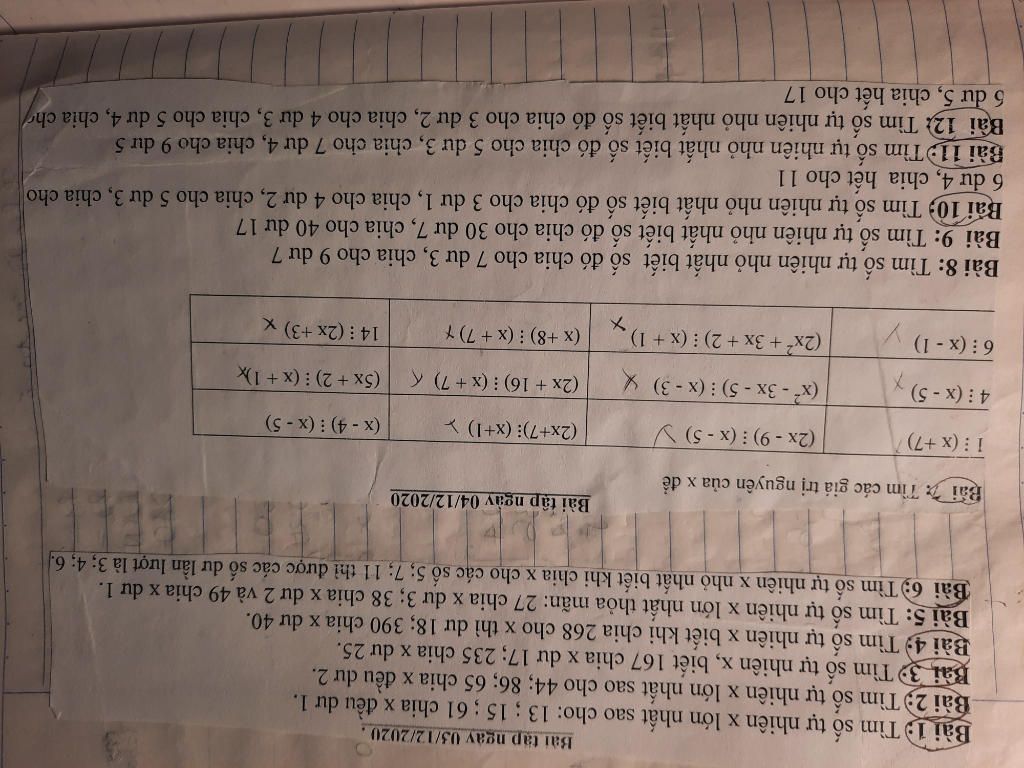 Bài tập ngày 03/12/2020.
Bài 1: Tìm số tự nhiên x lớn nhất sao cho: 13 ; 15 ; 61 chia x đều dư 1.
Bài 2: Tìm số tự nhiên x lớn nhất sao cho 44; 86; 65 chia x đều dư 2.
Bài 3: Tìm số tự nhiên x, biết 167 chia x dư 17; 235 chia x dư 25.
Bài 4: Tìm số tự nhiên x biết khi chia 268 cho x thì dư 18; 390 chia x dư 40.
Bài 5: Tìm số tự nhiên x lớn nhất thỏa mãn: 27 chia x dư 3; 38 chia x dư 2 và 49 chia x dư 1.
Bài 6: Tìm số tự nhiên x nhỏ nhất biết khi chia x cho các số 5; 7; 11 thì được các số dư lần lượt là 3; 4; 6.
Bài tập ngày 04/12/2020
Bài 7: Tìm các giá trị nguyên của x để
1 ⋮ (x +7) (2x - 9) ⋮ (x - 5) (2x+7)⋮ (x+1) (x - 4) ⋮ (x - 5)
4 ⋮ (x - 5) (x² - 3x - 5) ⋮ (x - 3) (2x + 16) ⋮ (x + 7) (5x + 2) ⋮ (x + 1)
6 ⋮ (x - 1) (2x² + 3x + 2) ⋮ (x + 1) (x +8) ⋮ (x + 7) 14 ⋮ (2x +3)
Bài 8: Tìm số tự nhiên nhỏ nhất biết số đó chia cho 7 dư 3, chia cho 9 dư 7
Bài 9: Tìm số tự nhiên nhỏ nhất biết số đó chia cho 30 dư 7, chia cho 40 dư 17
Bài 10: Tìm số tự nhiên nhỏ nhất biết số đó chia cho 3 dư 1, chia cho 4 dư 2, chia cho 5 dư 3, chia cho
6 dư 4, chia hết cho 11
Bài 11: Tìm số tự nhiên nhỏ nhất biết số đó chia cho 5 dư 3, chia cho 7 dư 4, chia cho 9 dư 5
Bài 12: Tìm số tự nhiên nhỏ nhất biết số đó chia cho 3 dư 2, chia cho 4 dư 3, chia cho 5 dư 4, chia cho
6 dư 5, chia hết cho 17